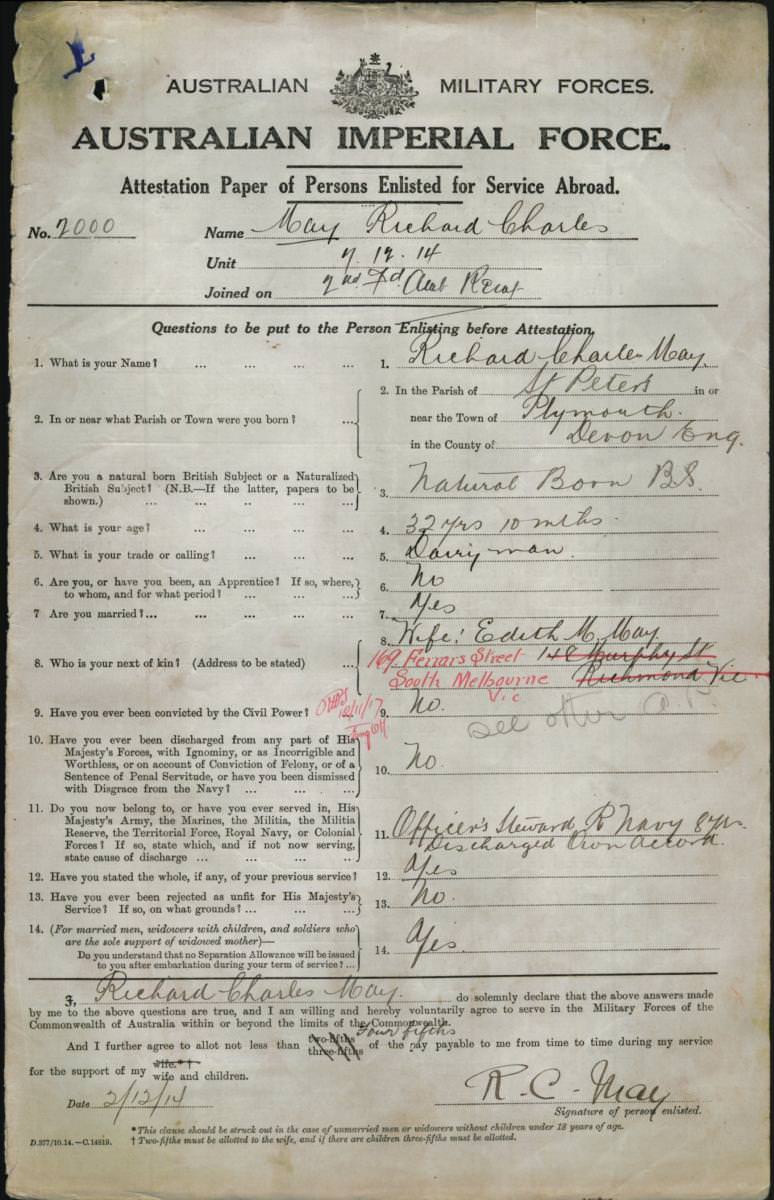 AUSTRALIAN MILITARY FORCES.
AUSTRALIAN IMPERIAL FORCE.
Attestation Paper of Persons Enlisted for Service Abroad.
No. 2000 Name May Richard Charles
Unit 7.12.14
Joined on 2nd Fd. Amb Reinf
Questions to be put to the Person Enlisting before Attestation.
1. What is your Name? ... ... ... ... 1. Richard Charles May.
2. In or near what Parish or Town were you born? ... 2. In the Parish of St Peters in or
near the Town of Plymouth.
in the County of Devon Eng.
3. Are you a natural born British Subject or a Naturalized
British Subject? (N.B.—If the latter, papers to be
shown.) ... ... ... ... 3. Natural Born B.S.
4. What is your age? ... ... ... ... 4. 32 yrs 10 mths.
5. What is your trade or calling? ... ... ... 5. Dairyman.
6. Are you, or have you been, an Apprentice? If so, where,
to whom, and for what period? ... ... ... 6. No
7 Are you married?... ... ... ... ... 7. Yes
8. Who is your next of kin? (Address to be stated) ... 8. Wife: Edith M. May
169 Ferrars Street 148 Murphy St
South Melbourne Richmond Vic
Vic
9. Have you ever been convicted by the Civil Power? ... 9. No.
12/11/17
see other A.P.
10. Have you ever been discharged from any part of His
Majesty's Forces, with Ignominy, or as Incorrigible and
Worthless, or on account of Conviction of Felony, or of a
Sentence of Penal Servitude, or have you been dismissed
with Disgrace from the Navy? ... ... ... 10. No.
11. Do you now belong to, or have you ever served in, His
Majesty's Army, the Marines, the Militia, the Militia
Reserve, the Territorial Force, Royal Navy, or Colonial
Forces? If so, state which, and if not now serving,
state cause of discharge ... ... ... .. 11. Officer's Steward R Navy 8 yrs.
Discharged Own Accord.
12. Have you stated the whole, if any, of your previous service? 12. Yes
13. Have you ever been rejected as unfit for His Majesty's
Service? If so, on what grounds? ... ... ... 13. No.
14. (For married men, widowers with children, and soldiers who
are the sole support of widowed mother)—
Do you understand that no Separation Allowance will be issued
to you after embarkation during your term of service? ... 14. Yes.
I, Richard Charles May. do solemnly declare that the above answers made
by me to the above questions are true, and I am willing and hereby voluntarily agree to serve in the Military Forces of the
Commonwealth of Australia within or beyond the limits of the Commonwealth.
Four fifths
And I further agree to allot not less than two-fifths three-fifths of the pay payable to me from time to time during my service
for the support of my wife.*† wife and children.
Date 2/12/14 R. C. May
Signature of person enlisted.
*This clause should be struck out in the case of unmarried men or widowers without children under 18 years of age.
D.377/10.14.—C.14819. † Two-fifths must be allotted to the wife, and if there are children three-fifths must be allotted.